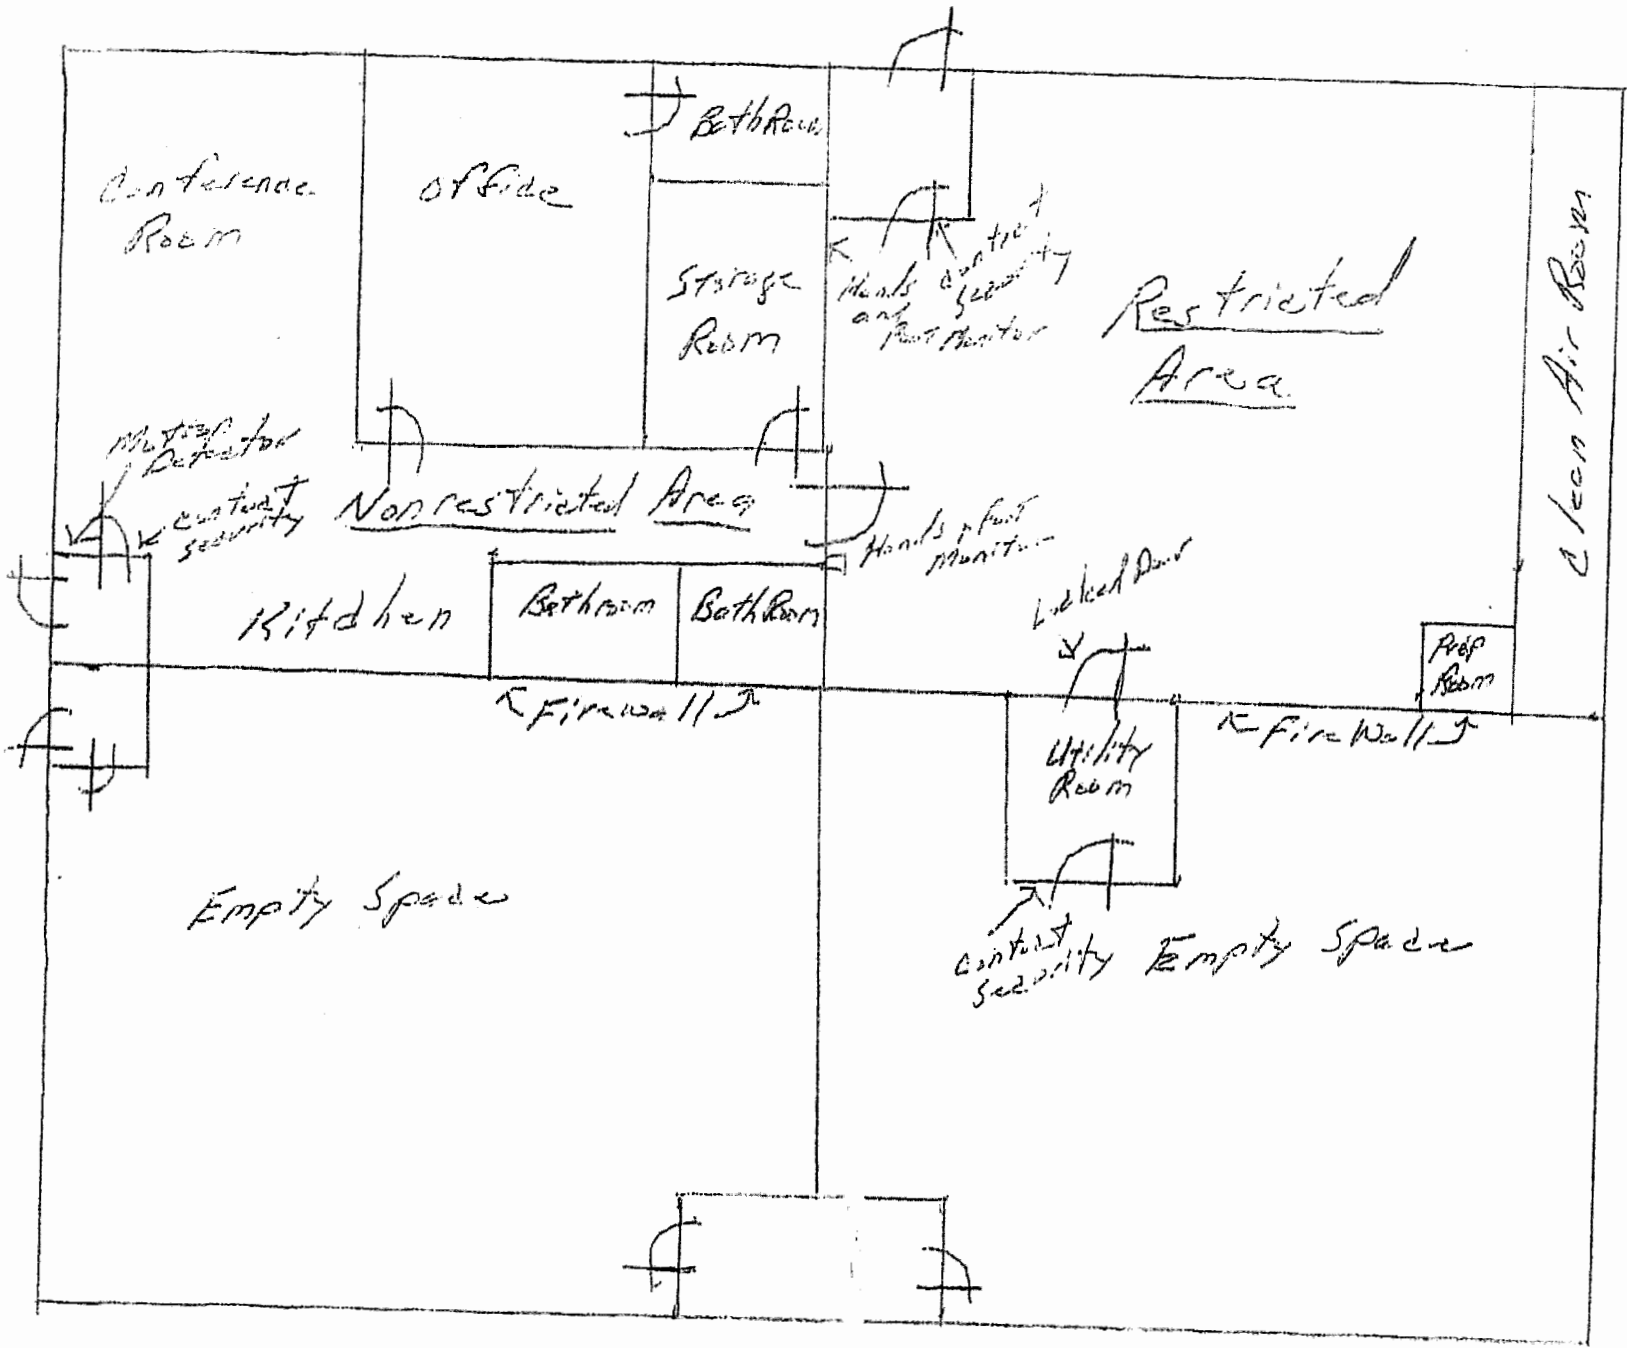 BathRoom
Conference
Room
Office
Storage
Room
Hands
and
Foot Monitor
Contact
Security
Restricted
Area
Clean Air Room
Motion
Detector
Contact
Security
Nonrestricted Area
Hands & Foot
Monitor
Locked Door
Kitchen
Bathroom
BathRoom
Prep
Room
Firewall
Fire Wall
Utility
Room
Empty Space
Contact
Security
Empty Space